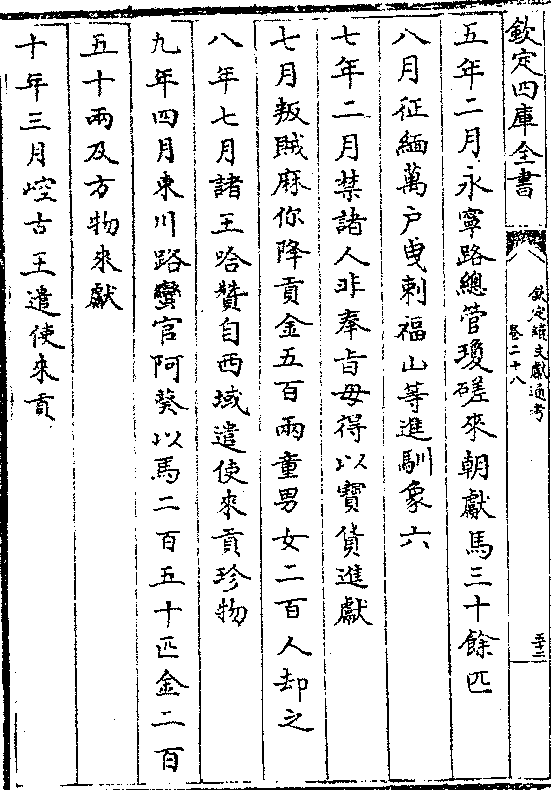 欽定四庫全書
欽定續文獻通考
卷二十八
五年二月永寧路總管瓊磋來朝獻馬三十餘匹
八月征緬萬户曳剌福山等進馴象六
七年二月禁諸人非奉㫖毋得以寶貨進獻
七月叛賊麻你降貢金五百兩童男女二百人却之
八年七月諸王哈贊自西域遣使來貢珍物
九年四月東川路蠻官阿葵以馬二百五十匹金二百
五十兩及方物來獻
十年三月崆古王遣使來貢